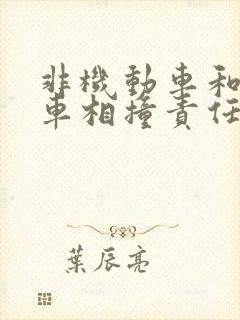 非機動車和
車相撞責任
葉辰亮